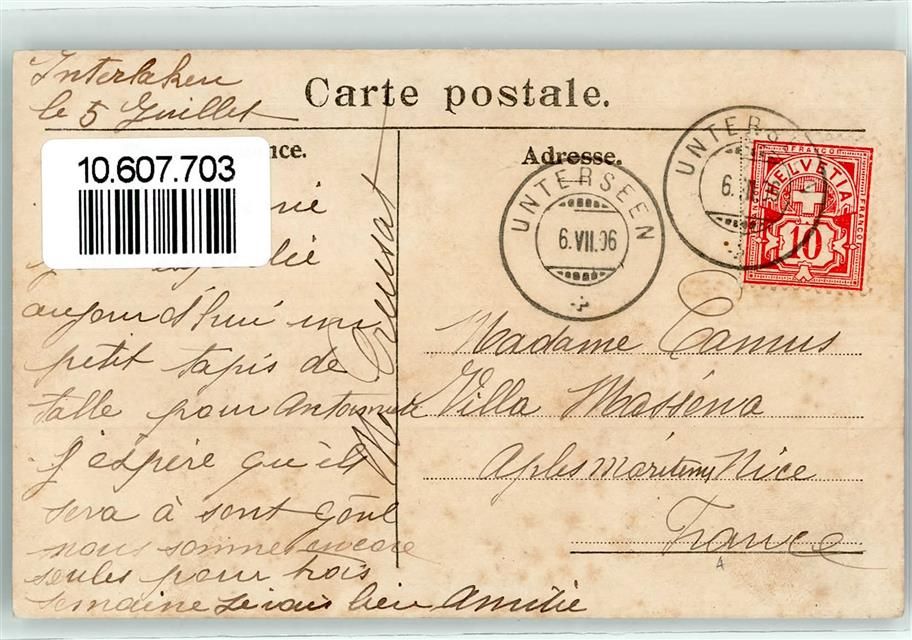 Interlaken
le 5 Juillet
Carte postale.
nce.
Adresse.
10.607.703
UNTERSEEN
6.VII.06
UNTERS
6.
FRANCO
HELVETIA
FRANCO
10
rie
aujourd'hui un
petit tapis de
talle pour Antoinette
J'éspére qu'il
sera à sont goût
nous somme encore
seules pour trois
semaine bien Amitié
Madame Camus
Villa Masséna
Alpes Maritimes Nice
France